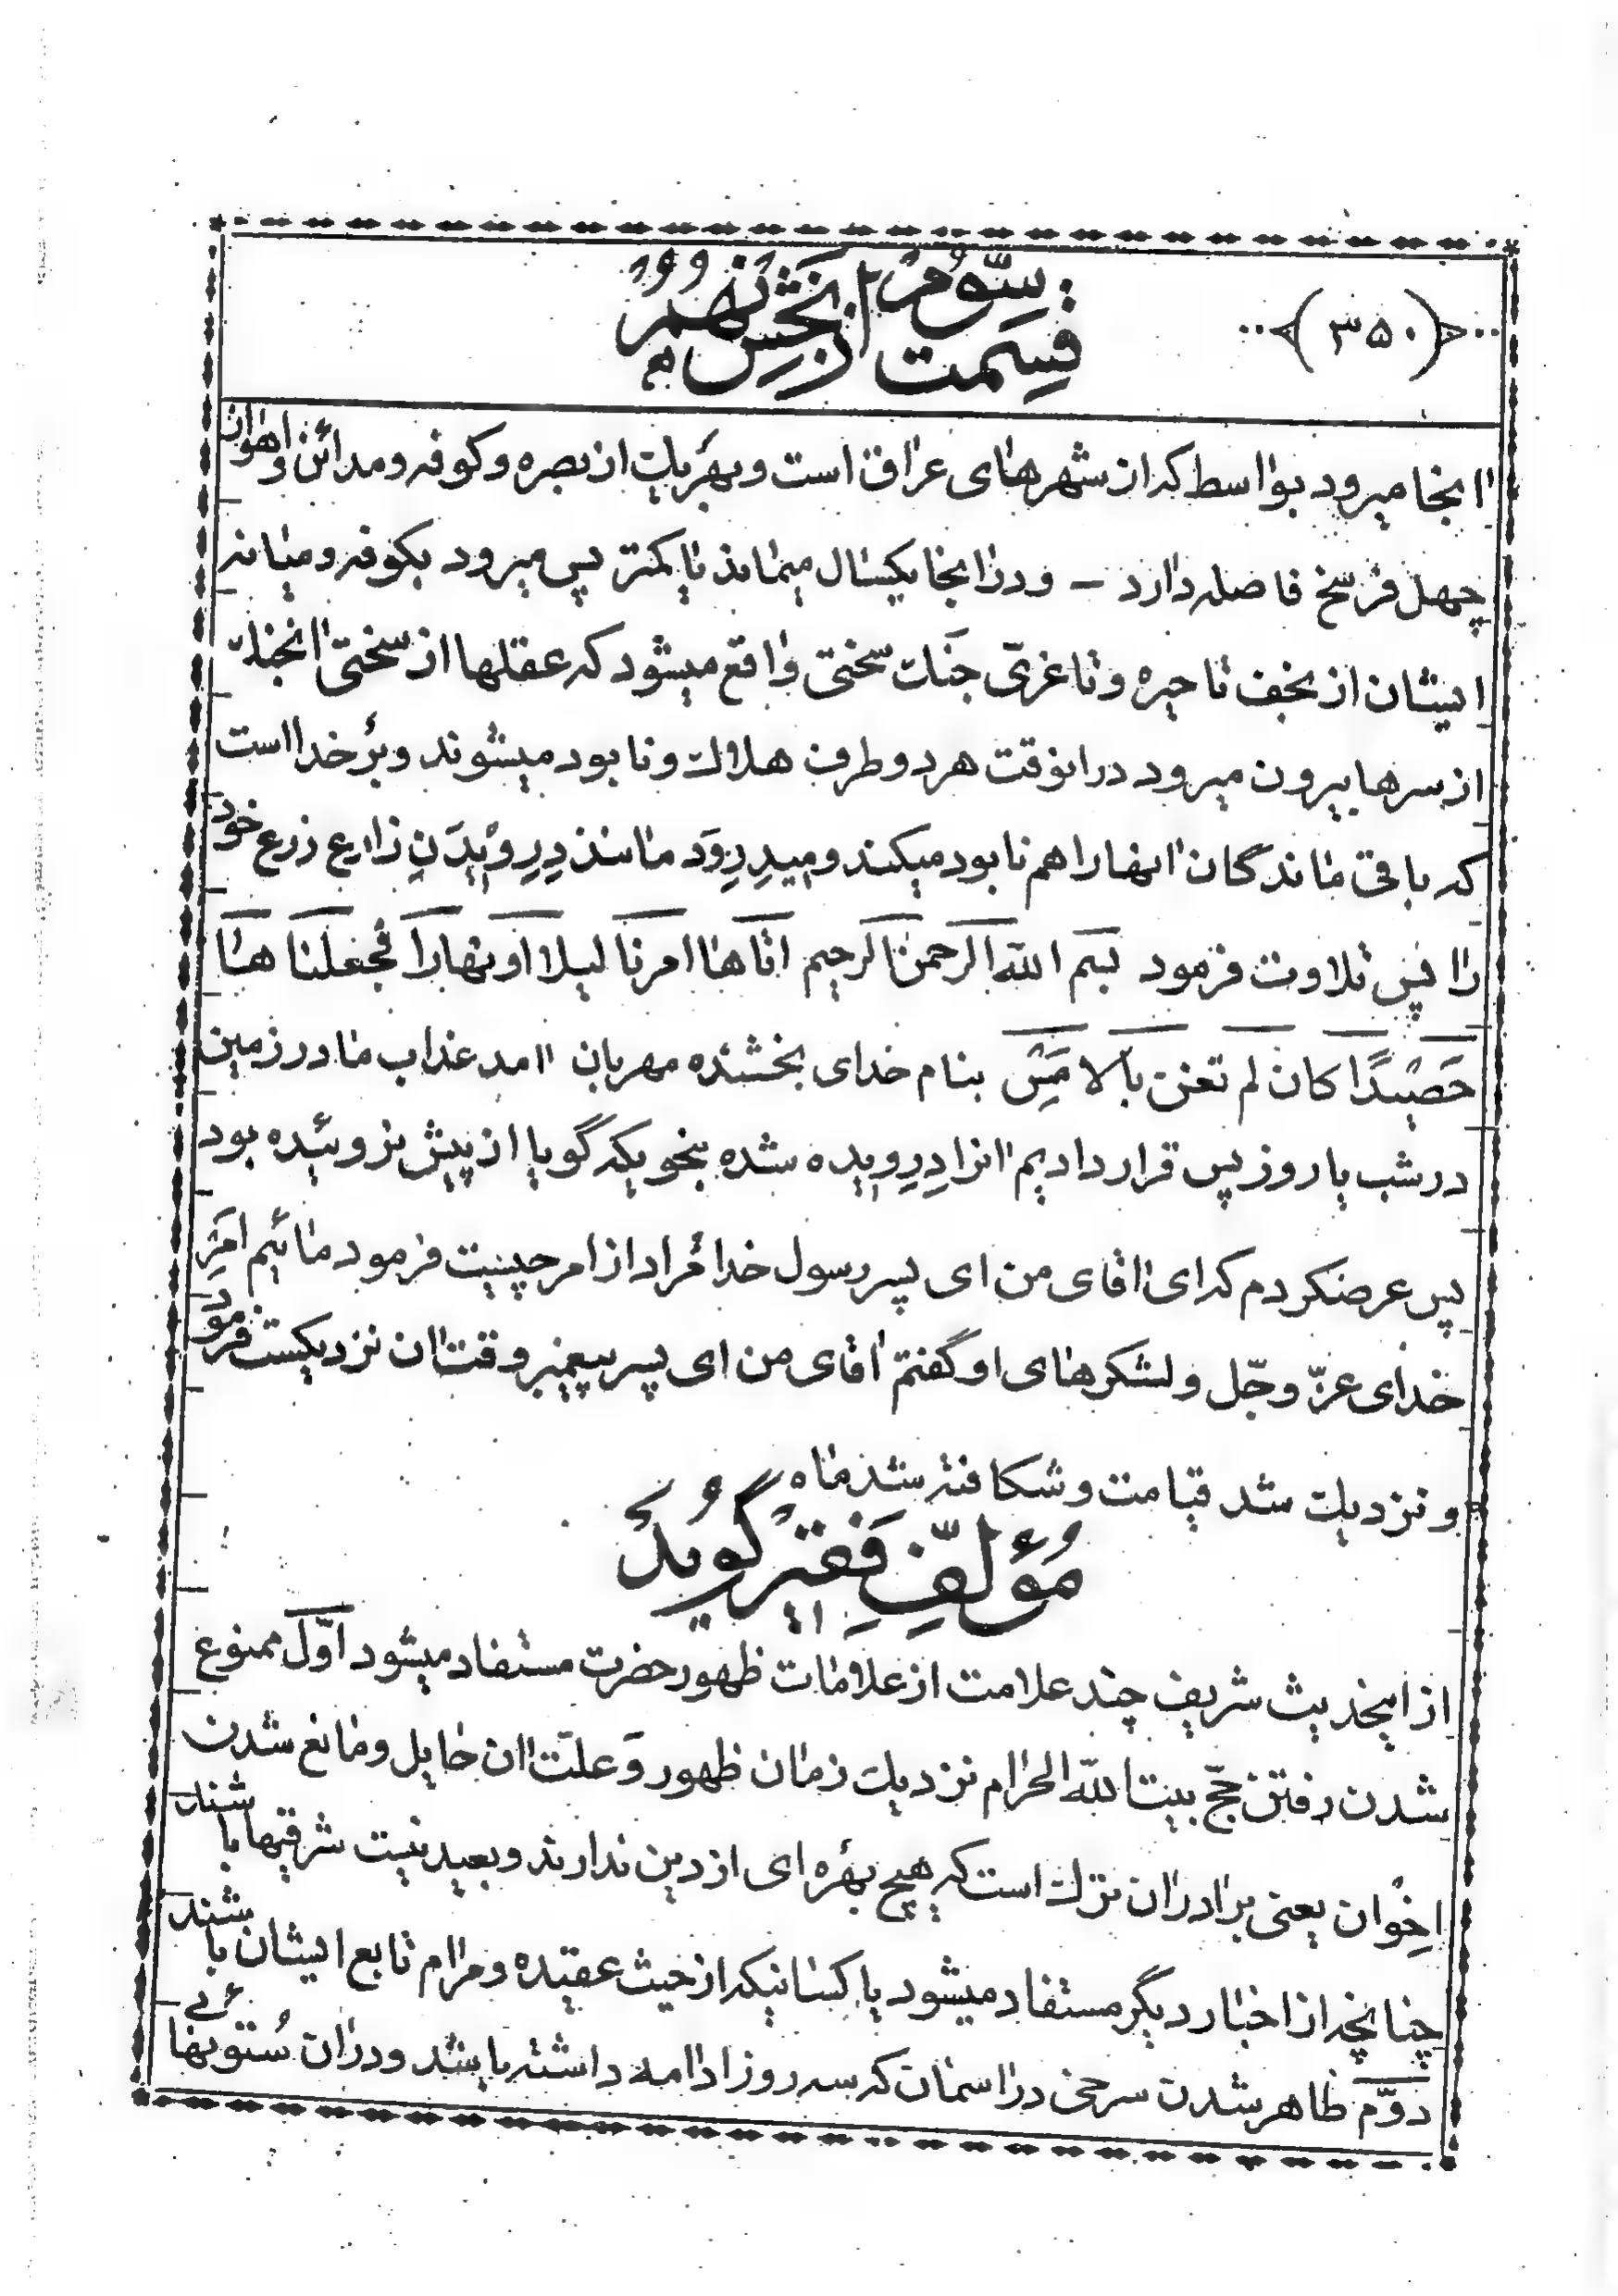 (۳۵۰)
قسمت سوّم از بخش نهم
آنجا میرود بواسط که از شهرهای عراق است و بهر یک از بصره و کوفه و مدائن و اهواز
چهل فرسخ فاصله دارد – و در آنجا یکسال میماند یا کمتر پس میرود بکوفه و میانه
ایشان از نجف تا حیره و تا غریّ جنک سختی واقع میشود که عقلها از سختی آنجنک
از سرها بیرون میرود در آنوقت هر دو طرف هلاک و نابود میشوند و بر خدا است
که باقی ماندگان آنها را هم نابود میکند و میدِرِوَد مانند دِرِویدَنِ زارع زرع خود
را پس تلاوت فرمود بسم الله الرحمن الرحیم اتاها امرنا لیلا او نهاراً فجعلناها
حَصیدًا کان لم تغن بالامسِ بنام خدای بخشنده مهربان آمد عذاب ما در زمین
در شب یا روز پس قرار دادیم آنرا دِرِویده شده بنحویکه گویا از پیش نروئیده بود
پس عرضکردم که ای آقای من ای پسر رسول خدا مُراد از امر چیست فرمود مائیم امر
خدای عزّ و جّل و لشکرهای او گفتم آقای من ای پسر پیغمبر وقت آن نزدیکست فرمود
و نزدیک شد قیامت و شکافته شد ماه
مُؤلّفِ فَقیر گُویَد
از اینحدیث شریف چند علامت از علامات ظهور حضرت مستفاد میشود اوّل ممنوع
شدن رفتن حجّ بیت الله الحرام نزدیک زمان ظهور و علّت آن حایل و مانع شدن
اخوان یعنی برادران ترک است که هیچ بهره ای از دین ندارند و بعید نیست شرقیها باشند
چنانچه از اخبار دیگر مستفاد میشود یا کسانیکه از حیث عقیده و مرام تابع ایشان باشند
دوّم ظاهر شدن سرخی در آسمان که سه روز ادامه داشته باشد و در آن سُتونهائی